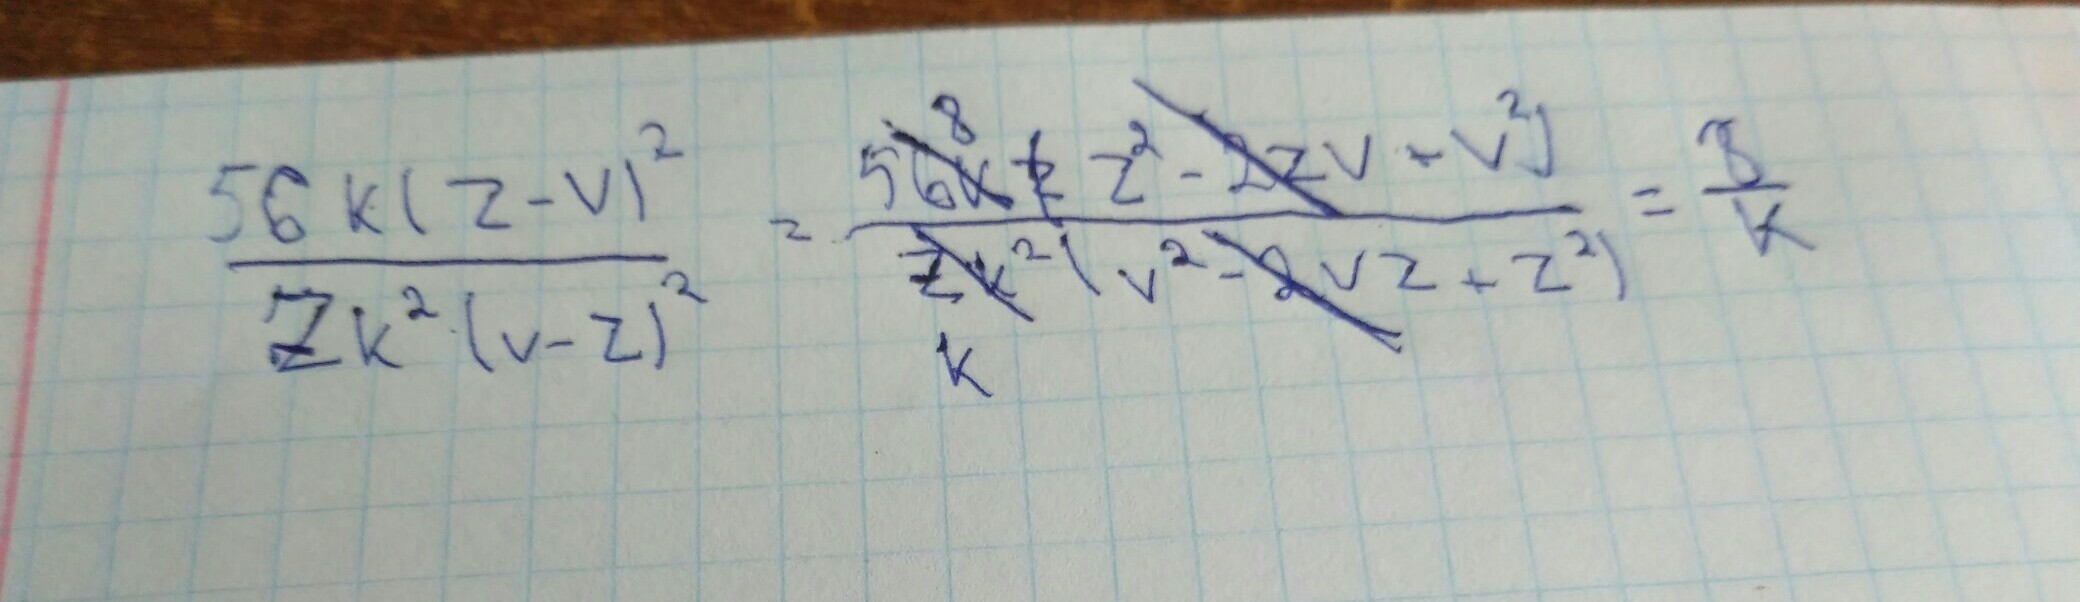 56k(z-v)² / 7k²(v-z)² = 56k(z²-2zv+v²) / 7k²(v²-2vz+z²) = 8/k
8
k